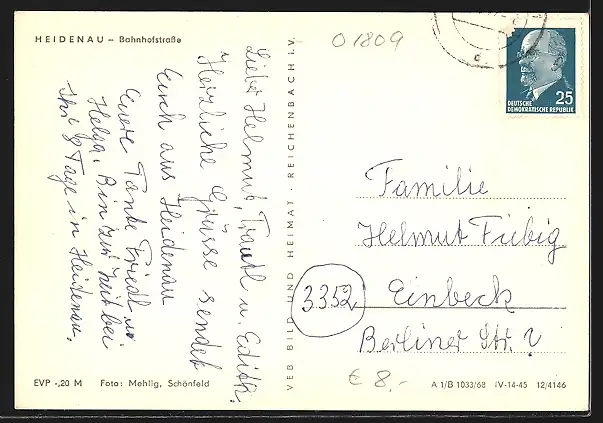 HEIDENAU – Bahnhofstraße
01809
Liebe Helmut, Trautl u. Edith,
Herzliche Grüsse sendet
Euch aus Heidenau
Eure Tante Friedl u.
Helga. Bin zur Zeit bei
Ihr 8 Tage in Heidenau.
VEB BILD UND HEIMAT · REICHENBACH I. V.
25
DEUTSCHE
DEMOKRATISCHE REPUBLIK
Familie
Helmut Fiebig
3352
Einbeck
Berliner Str. ?
€ 8,-
EVP -,20 M Foto: Mehlig, Schönfeld
A 1/B 1033/68 IV-14-45 12/4146